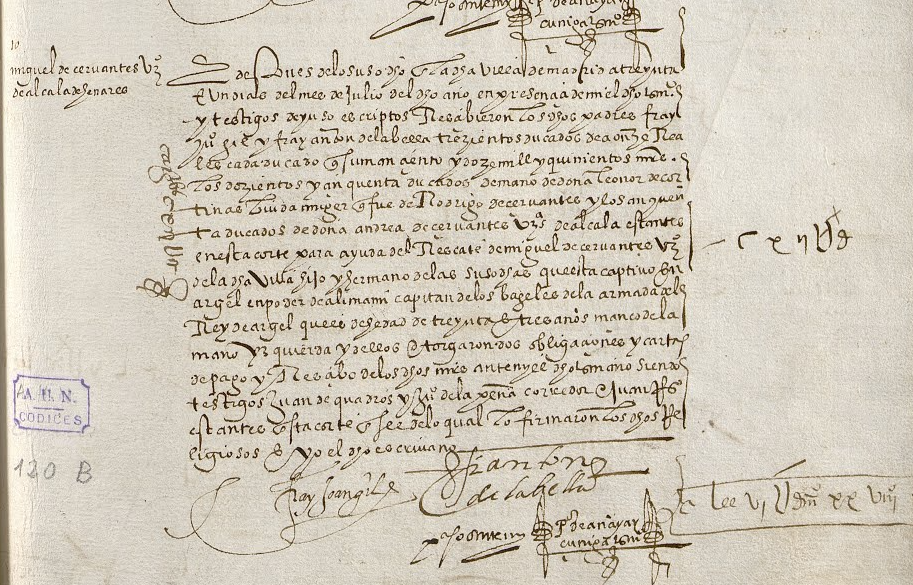 Pº de anaya y
çuñiga sno
miguel de cervantes vzº
de alcala de henares
Despues de lo suso dho en la dha villa de madrid a treynta
E un dias del mes de Julio del dho año en presençia de mi el dho notº
y testigos de yuso escriptos Resçibieron los dhos padres fray
Juº gil y fray anton de la bella trezientos ducados de a onze Rea
les cada ducado que suman çiento y doze mill y quinientos mrs.
los dozientos y çinquenta ducados de mano de doña leonor de cor
tinas biuda muger que fue de Rodrigo de cervantes y los çinquen
ta ducados de doña andrea de cervantes vzªs de alcala estantes
en esta corte para ayuda del Rescate de miguel de cervantes vzº
de la dha villa hijo y hermano de las susodhas que esta captivo en
argel en poder de alimami capitan de los baxeles de la armada del
Rey de argel que es de hedad de treynta e tres años manco de la
mano yzquierda y dellos otorgaron dos obligaçiones y cartas
de pago y Resçibo de los dhos mrs ante my el dho sno siendo
testigos Juan de quadros y Juº de la peña corredor e Juan
estantes en esta corte e en fee de lo qual lo firmaron los dhos Re
ligiosos e yo el dho escrivano
fray Joan gil
fr anton
de la bella
Pº de anaya y
çuñiga sno
A. H. N.
CODICES
120 B